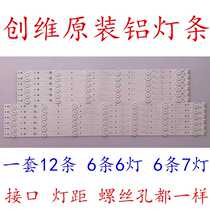 创维原装铝灯条
一套12条 6条6灯 6条7灯
接口 灯距 螺丝孔都一样